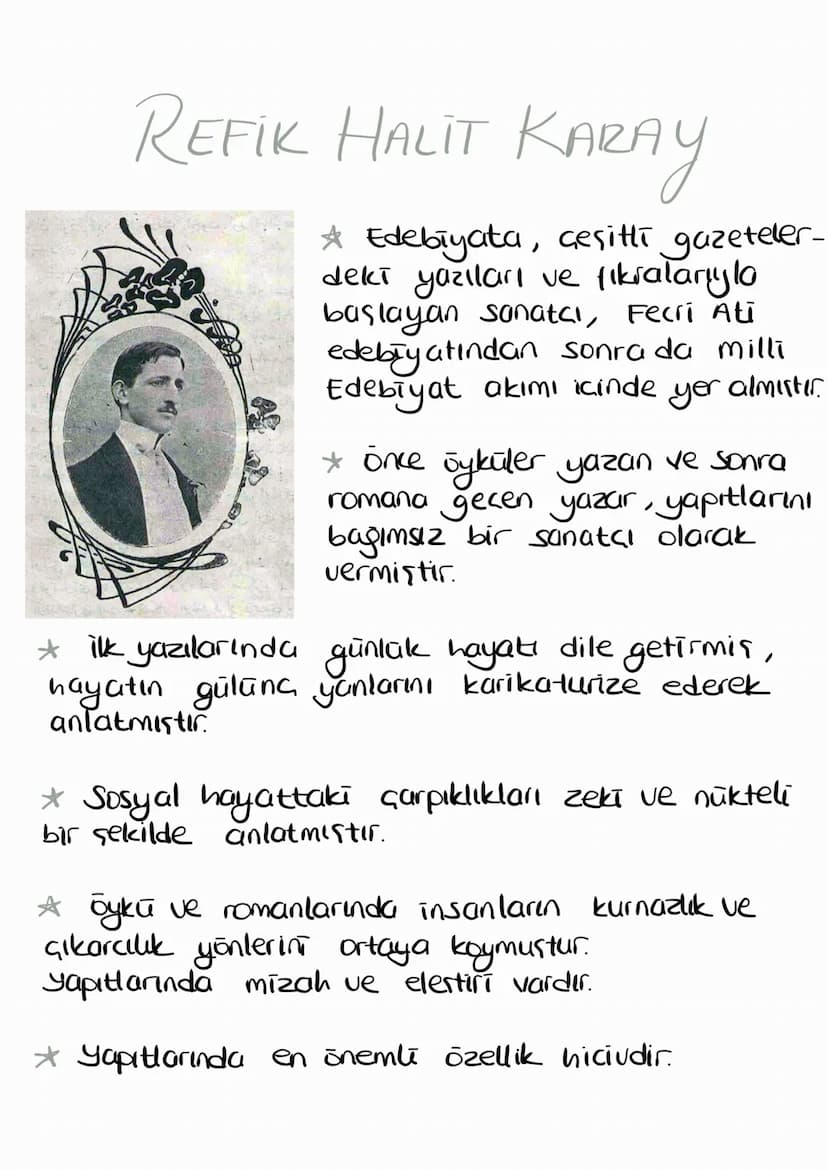 REFİK HALİT KARAY
☆ Edebiyata, çeşitli gazeteler-
deki yazıları ve fıkralarıyla
başlayan sanatçı, Fecri Ati
edebiyatından sonra da milli
Edebiyat akımı icinde yer almıştır.
☆ Önce öyküler yazan ve sonra
romana geçen yazar, yapıtlarını
bağımsız bir sanatçı olarak
vermiştir.
☆ İlk yazılarında günlük hayatı dile getirmiş,
hayatın gülünç yönlarını karikaturize ederek
anlatmıştır.
☆ Sosyal hayattaki çarpıklıkları zeki ve nükteli
bir şekilde anlatmıştır.
☆ Öykü ve romanlarında insanların kurnazlık ve
çıkarcılık yönlerini ortaya koymuştur.
Yapıtlarında mizah ve eleştiri vardır.
☆ Yapıtlarında en önemli özellik hicivdir.